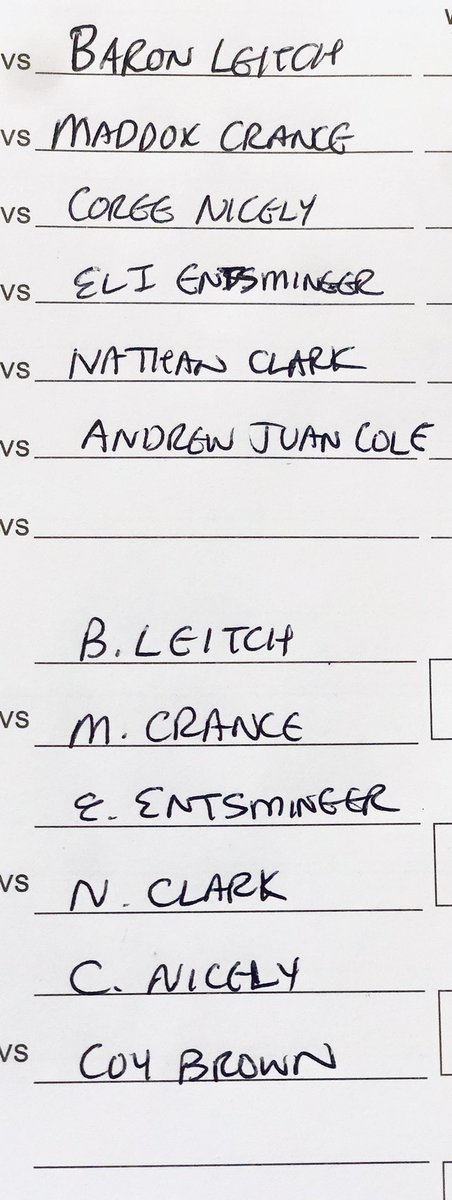 vs BARON LEITCH
vs MADDOX CRANCE
vs COREE NICELY
vs ELI ENTSMINGER
vs NATHAN CLARK
vs ANDREW JUAN COLE
vs
B. LEITCH
vs M. CRANCE
E. ENTSMINGER
vs N. CLARK
C. NICELY
vs COY BROWN